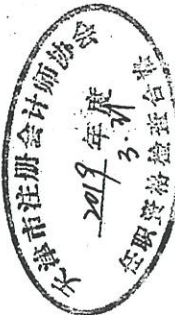 天津市注册会计师协会
2019年度
3.31
注册资格检查合格